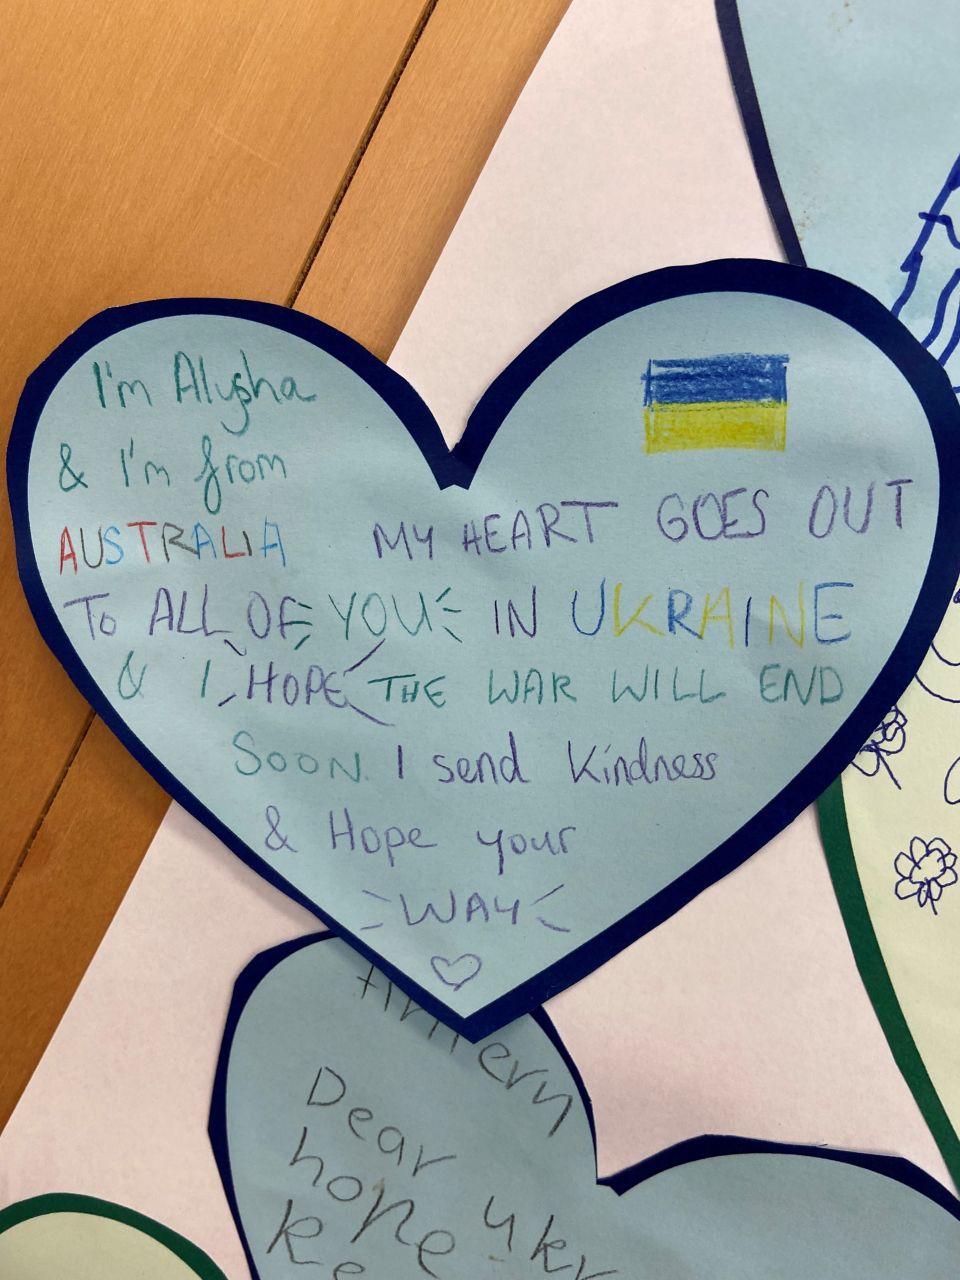 I'm Alysha
& I'm from
AUSTRALIA MY HEART GOES OUT
To ALL OF YOU IN UKRAINE
& I HOPE THE WAR WILL END
SOON. I send Kindness
& Hope your
WAY
Dear
hope ukr